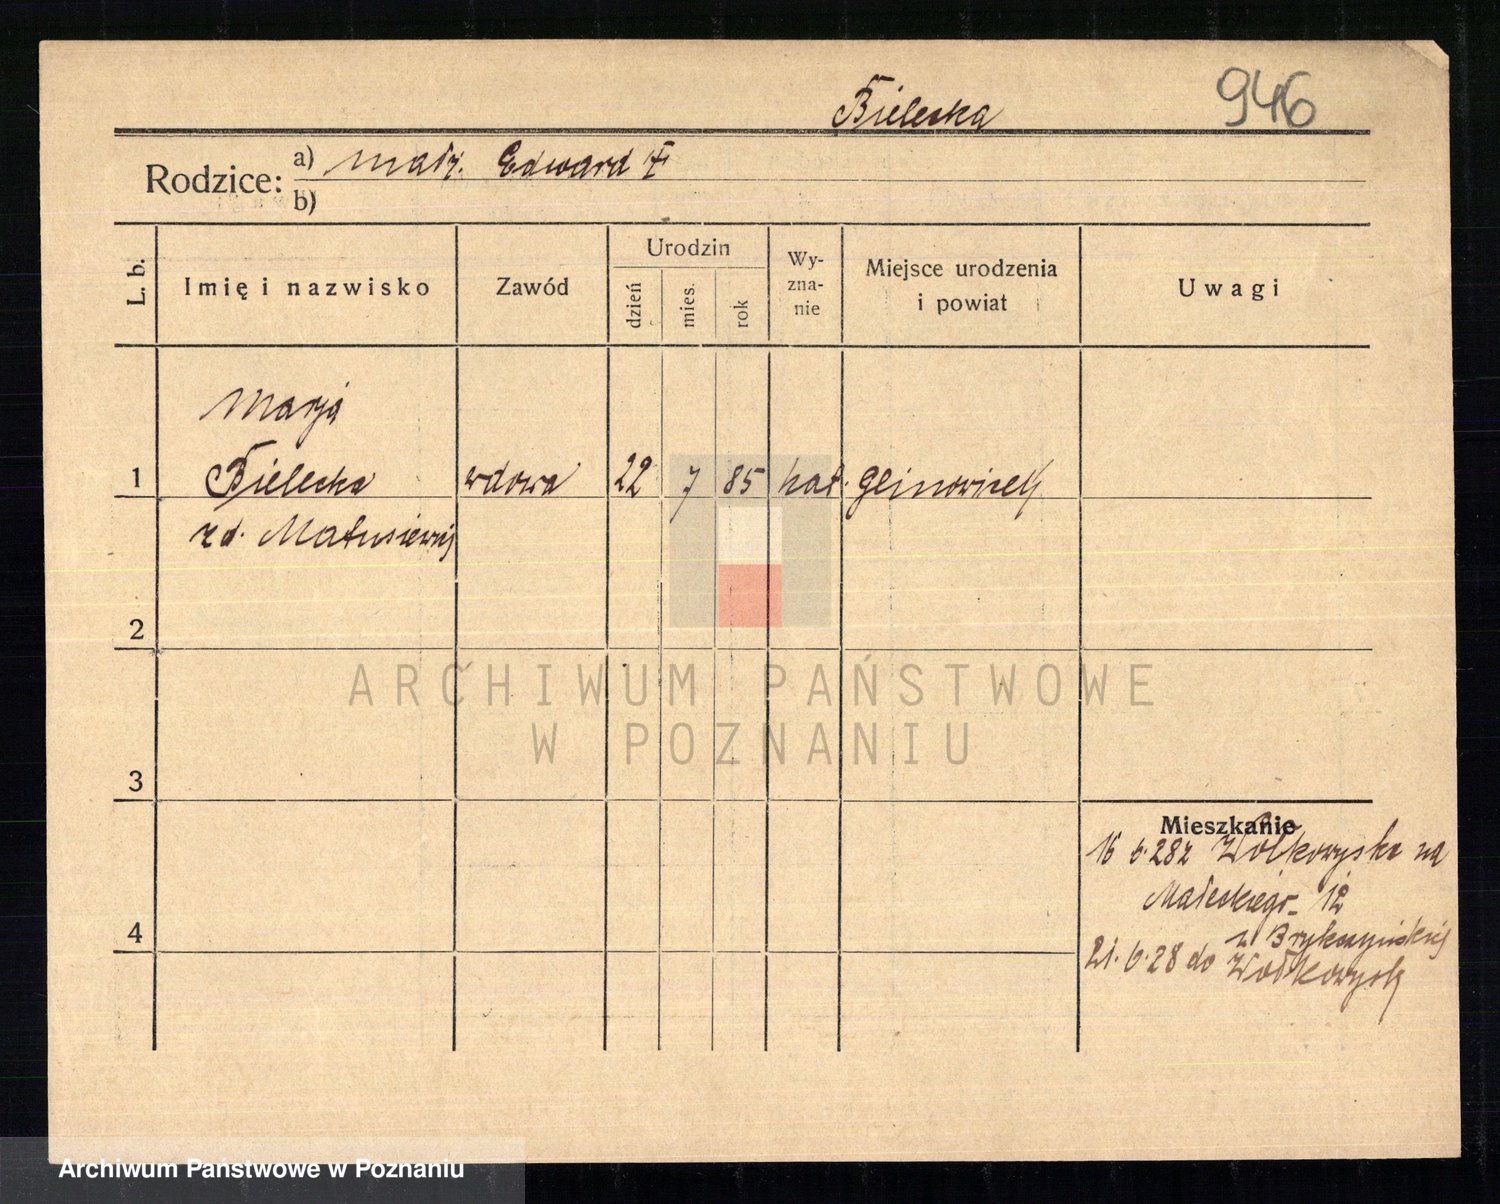 Bielecka 946
Rodzice: a) małż. Edward
b)
L. b. Imię i nazwisko Zawód Urodzin dzień mies. rok Wy-zna-nie Miejsce urodzenia i powiat Uwagi
Marja
1 Bielecka wdowa 22 7 85 kat.
zd.
2
3
4
Mieszkanie
16 6.28 z Wołkowyska na
Małeckiego 12
z
21.6.28 do Wołkowysk
ARCHIWUM PAŃSTWOWE
W POZNANIU
Archiwum Państwowe w Poznaniu